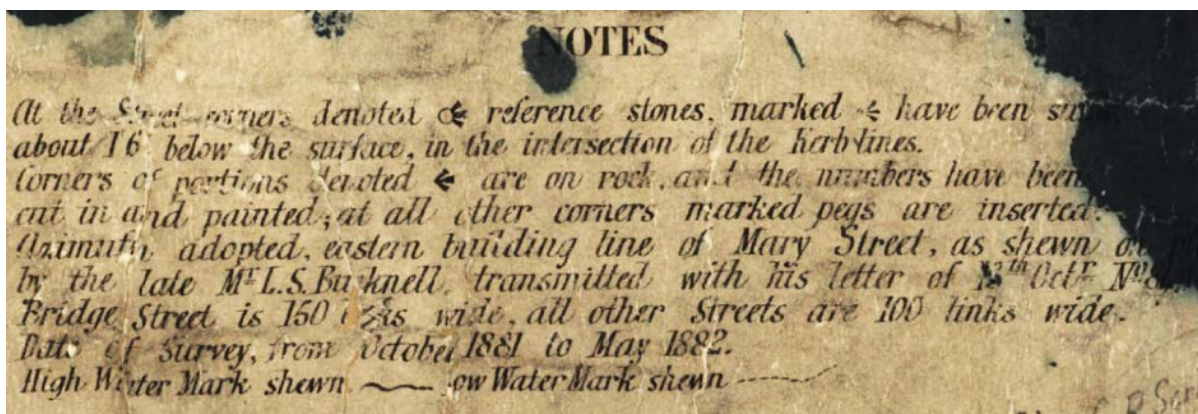 NOTES
At the Street corners denoted reference stones, marked have been
about 16 below the surface, in the intersection of the Kerb lines.
Corners of portions denoted are on rock, and the numbers have been
cut in and painted; at all other corners marked pegs are inserted.
Azimuth adopted, eastern building line of Mary Street, as shewn on
by the late Mr L.S. Bucknell, transmitted with his letter of Octr No
Bridge Street is 150 links wide, all other Streets are 100 links wide.
Date of Survey, from October 1881 to May 1882.
High Water Mark shewn ow Water Mark shewn